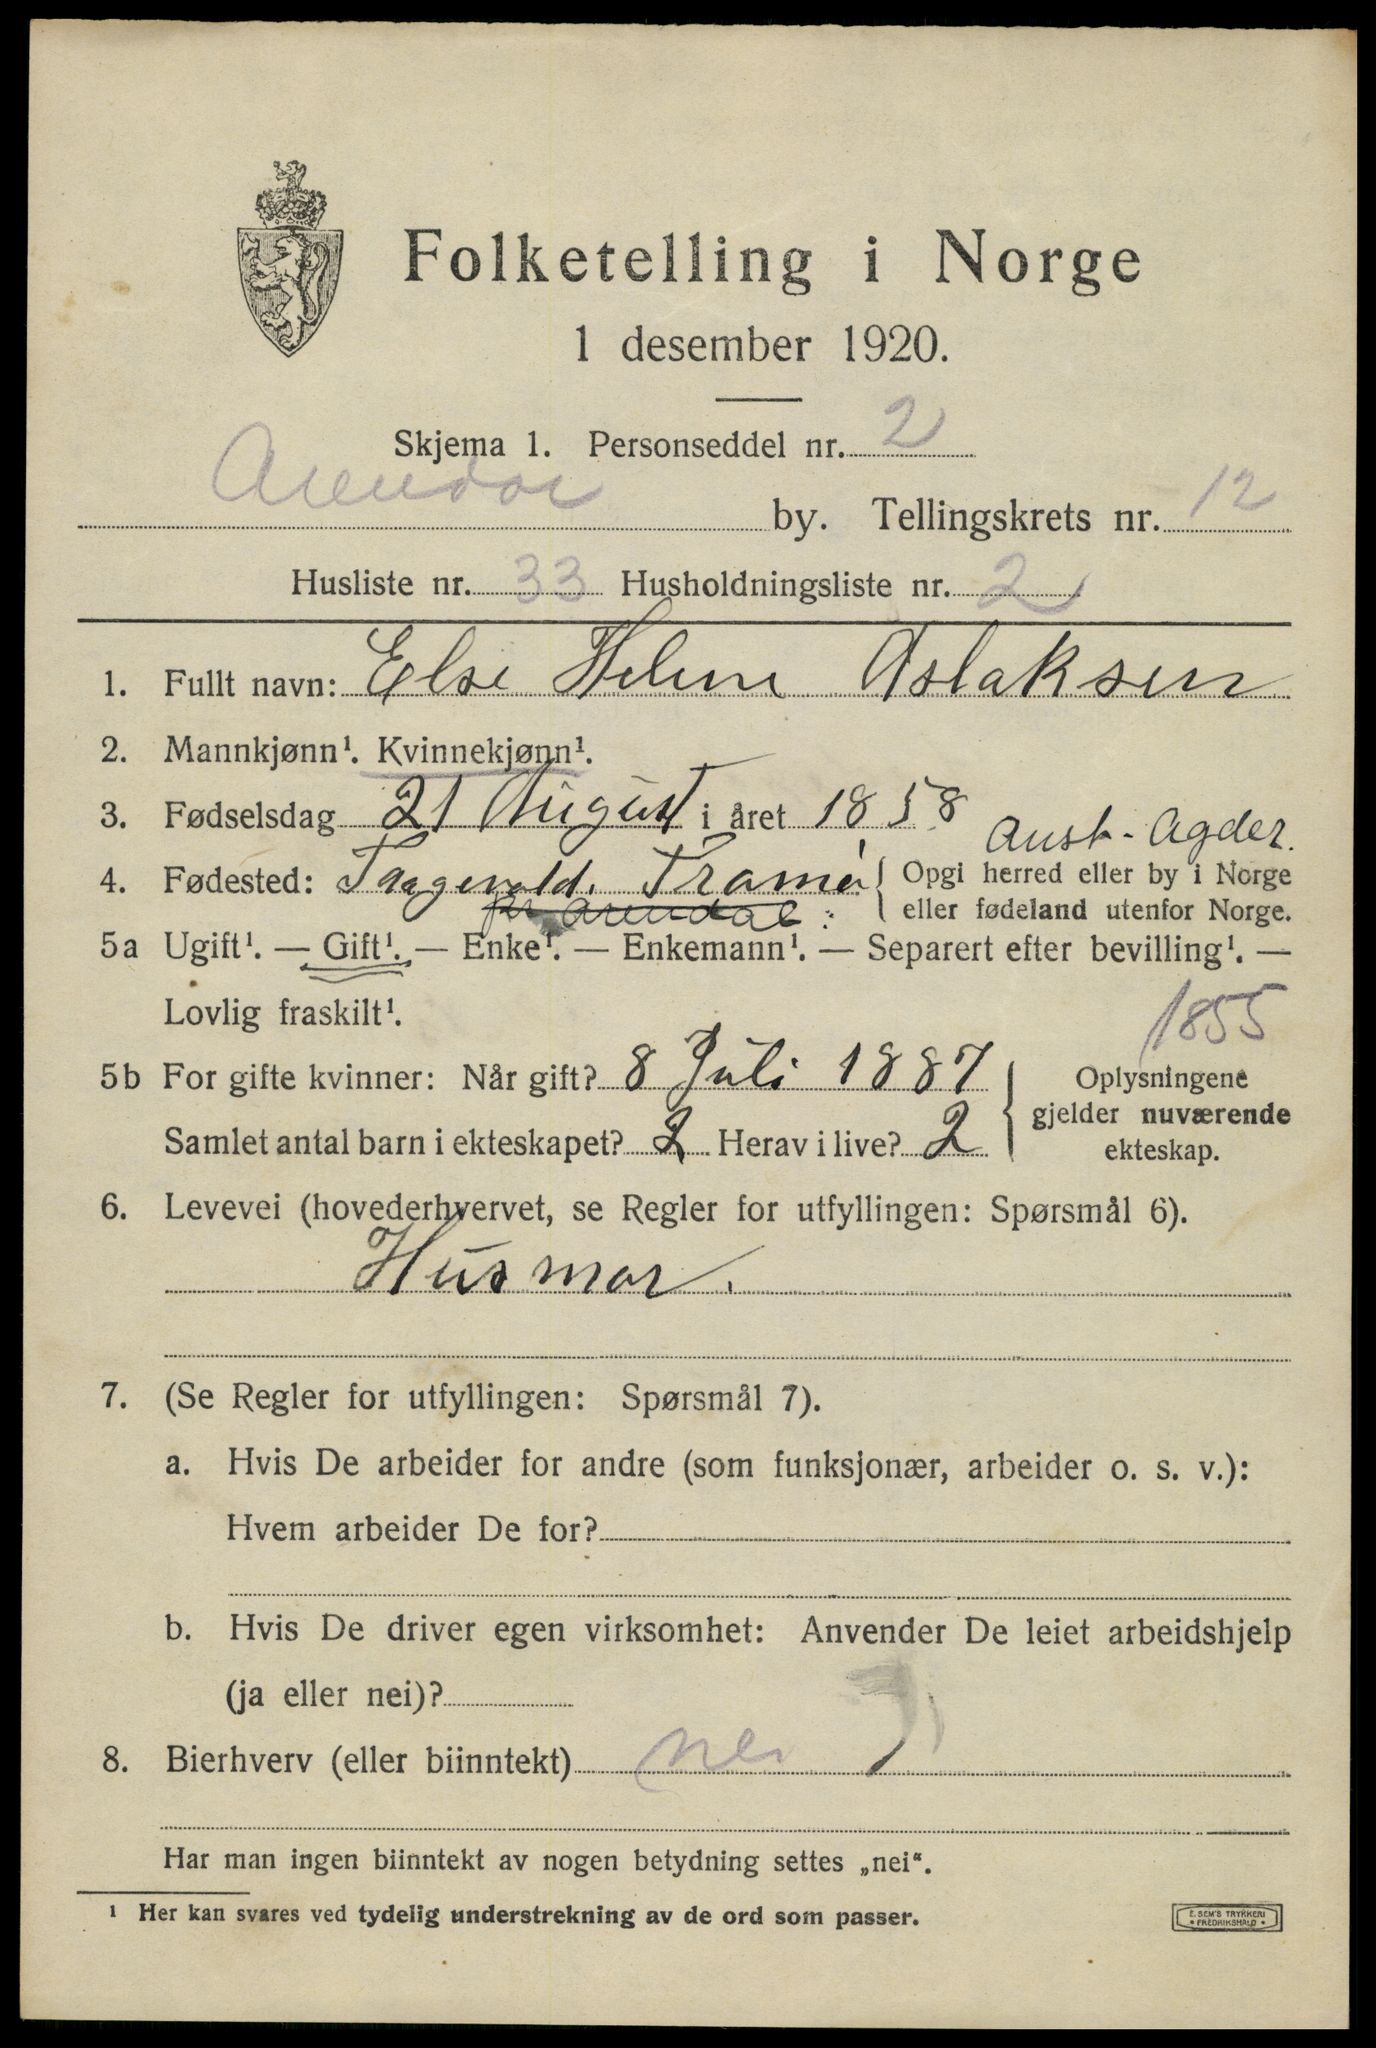 Folketelling i Norge
1 desember 1920.
Skjema 1. Personseddel nr. 2
Arendal by. Tellingskrets nr. 12
Husliste nr. 33 Husholdningsliste nr. 2
1. Fullt navn: Else Helene Aslaksen
2. Mannkjønn¹. Kvinnekjønn¹.
3. Fødselsdag 21 August i året 1858
Aust-Agder.
4. Fødested: Tromø Opgi herred eller by i Norge
pr Arendal: eller fødeland utenfor Norge.
5a Ugift¹. — Gift¹. — Enke¹. — Enkemann¹. — Separert efter bevilling¹. —
Lovlig fraskilt¹.
1855
5b For gifte kvinner: Når gift? 8 Juli 1887 Oplysningene
gjelder nuværende
Samlet antal barn i ekteskapet? 2 Herav i live? 2 ekteskap.
6. Levevei (hovederhvervet, se Regler for utfyllingen: Spørsmål 6).
Husmor.
7. (Se Regler for utfyllingen: Spørsmål 7).
a. Hvis De arbeider for andre (som funksjonær, arbeider o. s. v.):
Hvem arbeider De for?
b. Hvis De driver egen virksomhet: Anvender De leiet arbeidshjelp
(ja eller nei)?
8. Bierhverv (eller biinntekt) nei
Har man ingen biinntekt av nogen betydning settes „nei“.
¹ Her kan svares ved tydelig understrekning av de ord som passer.
E. SEM'S TRYKKERI
• FREDRIKSHALD •